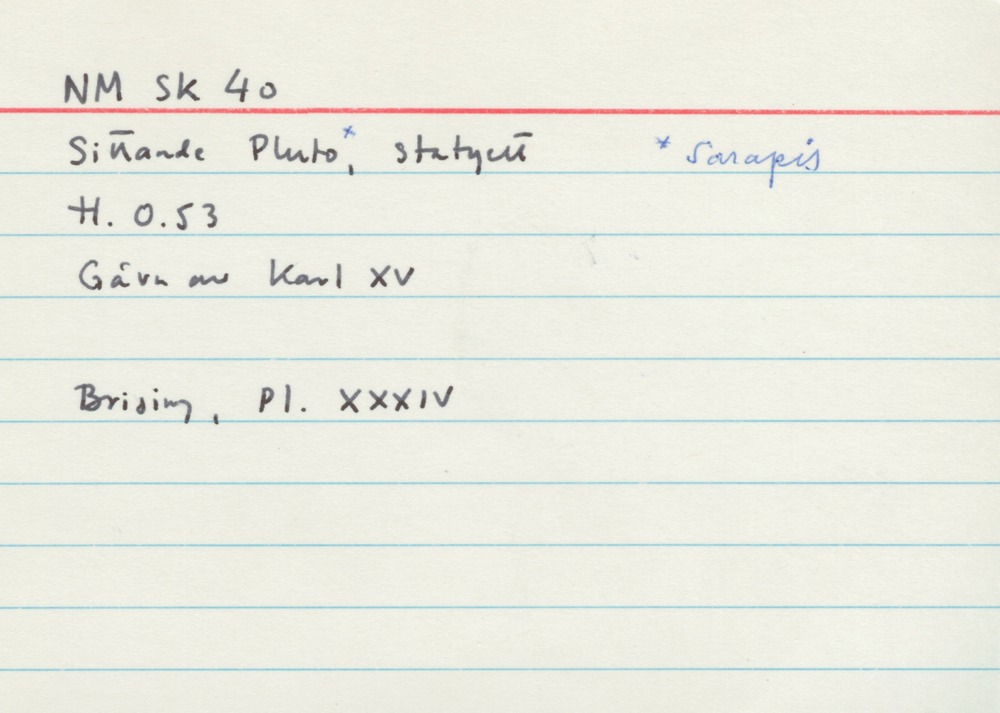 NM SK 40
Sittande Pluto*, statyett * Sarapis
H. 0.53
Gåva av Karl XV
Brising, Pl. XXXIV